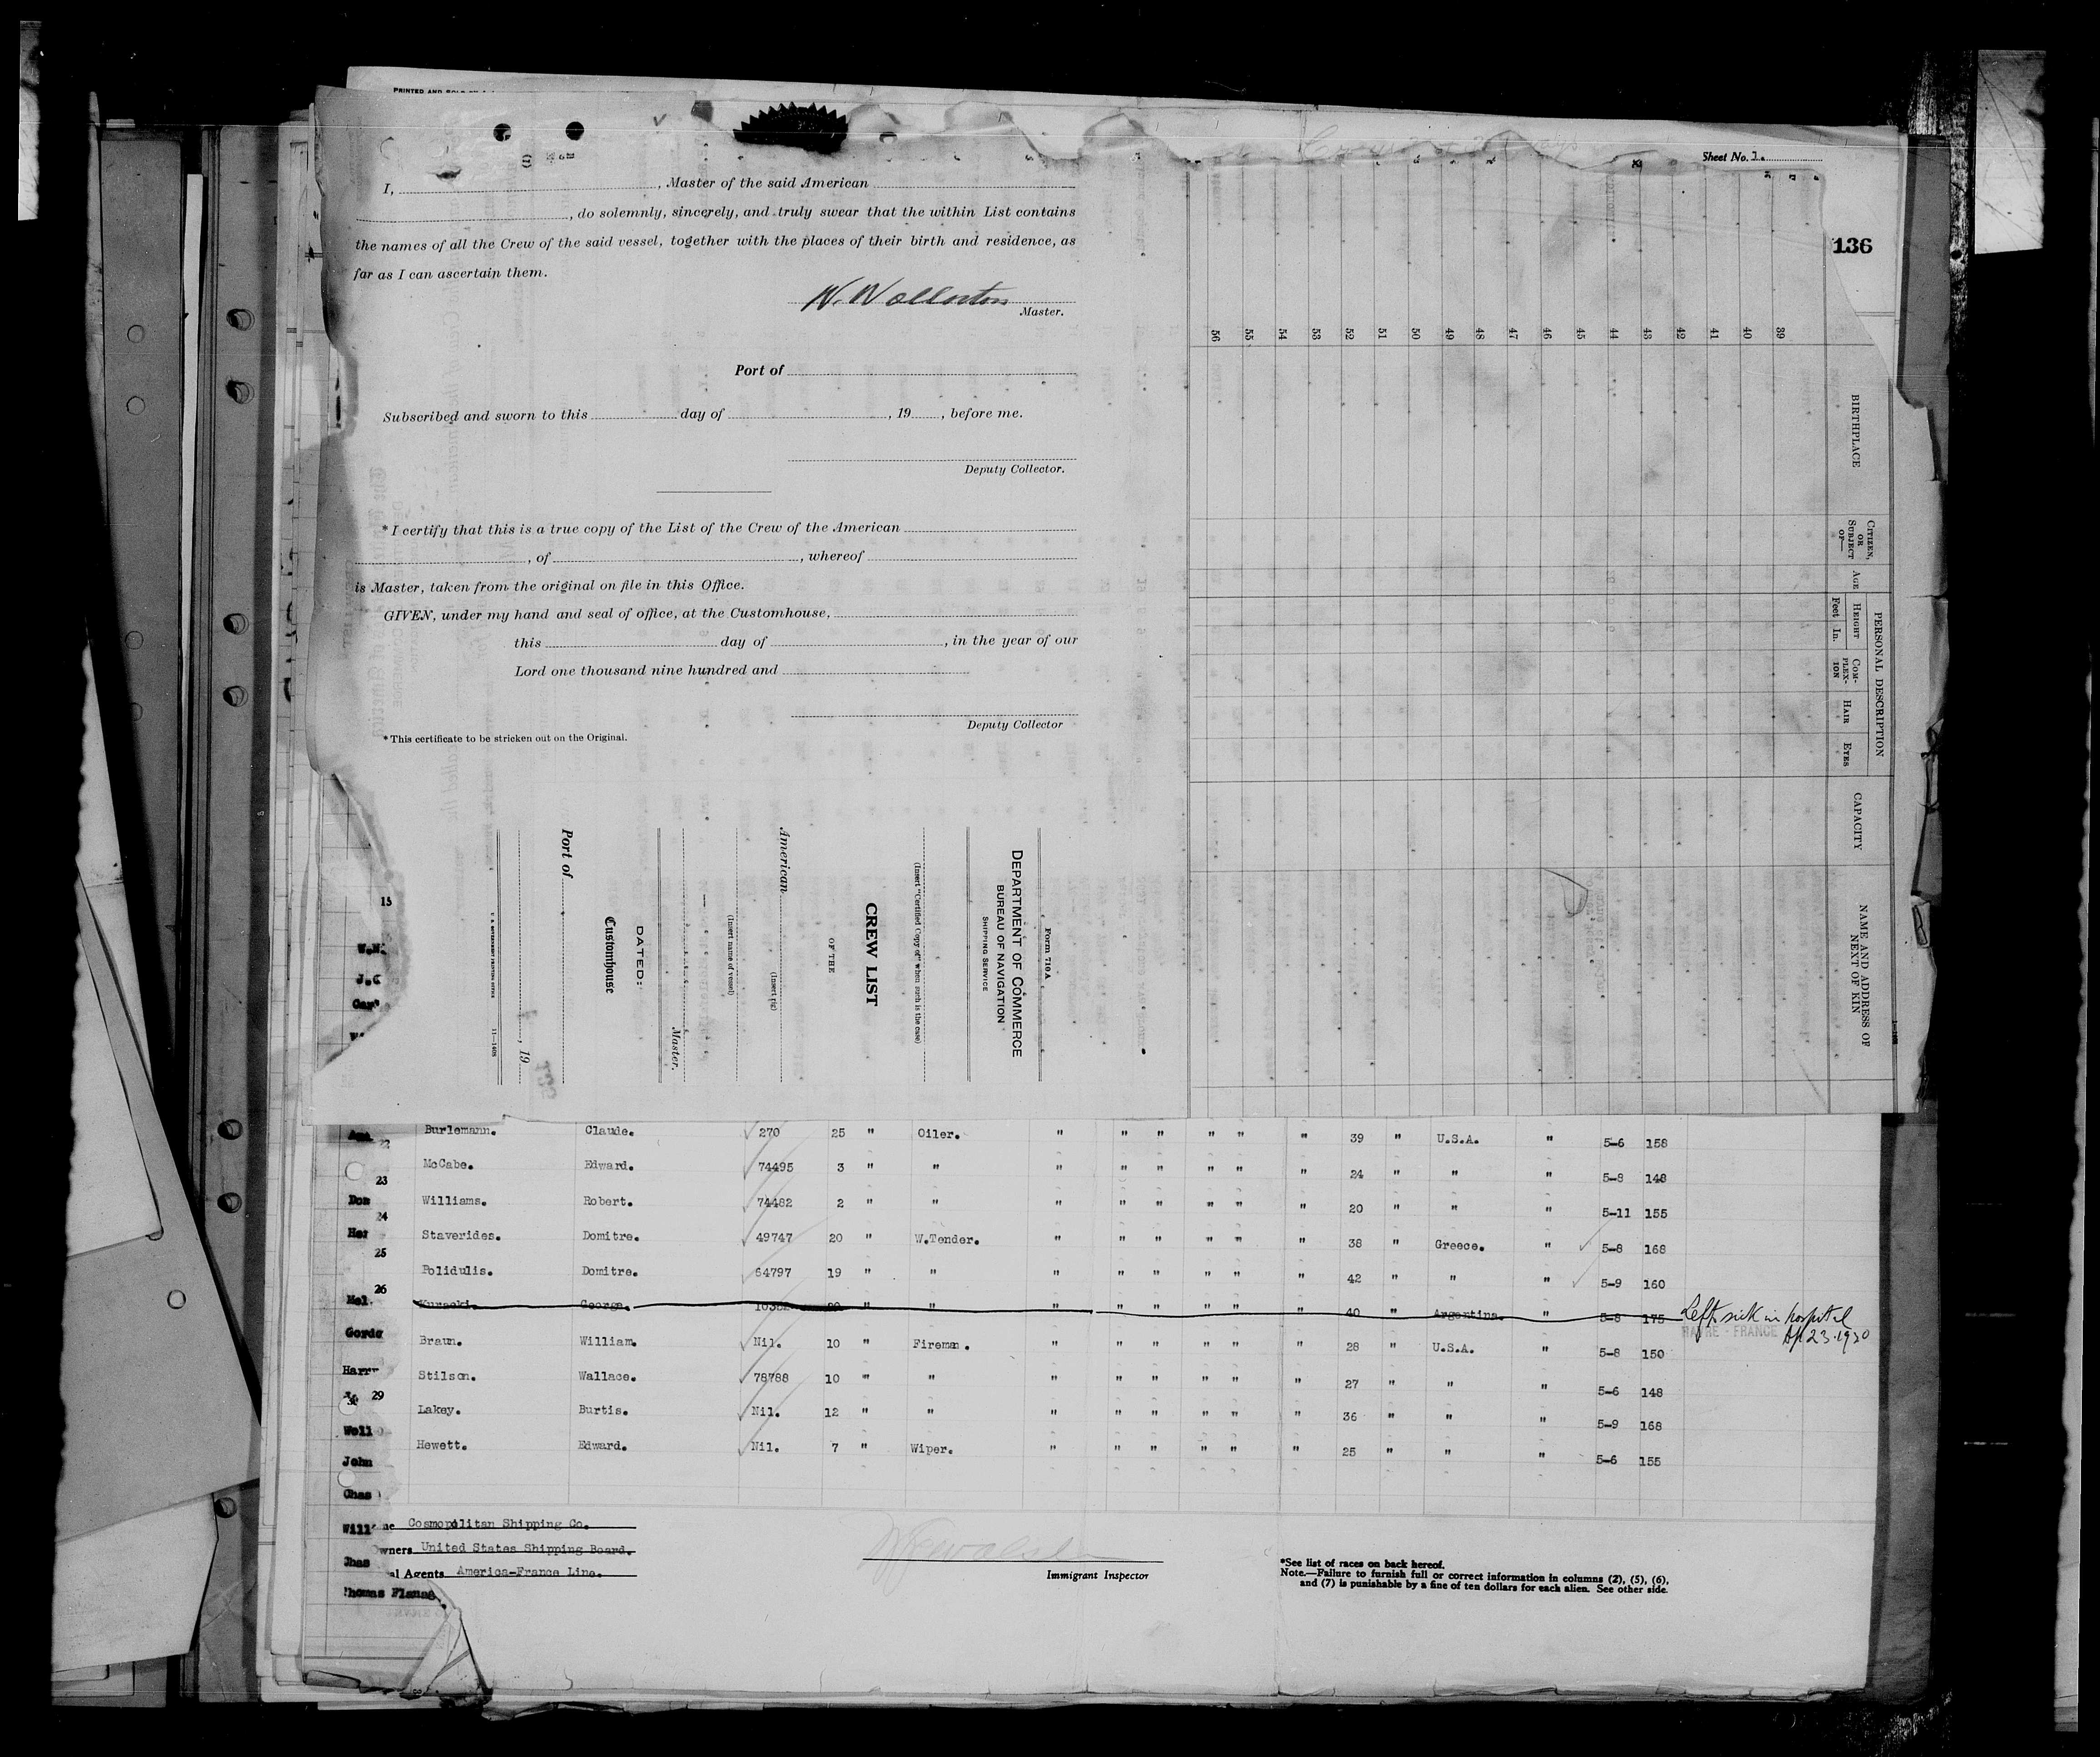 Sheet No. 1.
136
I, , Master of the said American
, do solemnly, sincerely, and truly swear that the within List contains
the names of all the Crew of the said vessel, together with the places of their birth and residence, as
far as I can ascertain them.
Master.
Port of
Subscribed and sworn to this day of , 19 , before me.
Deputy Collector.
* I certify that this is a true copy of the List of the Crew of the American
, of , whereof
is Master, taken from the original on file in this Office.
GIVEN, under my hand and seal of office, at the Customhouse,
this day of , in the year of our
Lord one thousand nine hundred and
Deputy Collector
* This certificate to be stricken out on the Original.
Form 710A
DEPARTMENT OF COMMERCE
BUREAU OF NAVIGATION
SHIPPING SERVICE
(Insert "Certified Copy of" when such is the case)
CREW LIST
OF THE
American
(Insert rig)
(Insert name of vessel)
Master.
DATED:
Customhouse
Port of
, 19
U. S. GOVERNMENT PRINTING OFFICE 11—1408
56 55 54 53 52 51 50 49 48 47 46 45 44 43 42 41 40 39
BIRTHPLACE
CITIZEN, OR SUBJECT OF—
PERSONAL DESCRIPTION
AGE
HEIGHT
Feet In.
COMPLEXION
HAIR
EYES
CAPACITY
NAME AND ADDRESS OF NEXT OF KIN
15
W.N.
Burlemann. Claude. 270 25 " Oiler. " " " " " " 39 " U.S.A. " 5-6 158
McCabe. Edward. 74495 3 " " " " " " " " 24 " " " 5-8 148
23
Don Williams. Robert. 74482 2 " " " " " " " " 20 " " " 5-11 155
24
Staverides. Domitre. 49747 20 " W.Tender. " " " " " " 38 " Greece. " 5-8 168
25
Polidulis. Domitre. 64797 19 " " " " " " " " 42 " " " 5-9 160
26
Kuracki. George. " " " " " " " " 40 " Argentina. " 5-8 175 Left sick in hospital
HAVRE - FRANCE Ap 23·1920
Braun. William. Nil. 10 " Fireman. " " " " " " 28 " U.S.A. " 5-8 150
Stilson. Wallace. 78788 10 " " " " " " " " 27 " " " 5-6 148
29
Lakey. Burtis. Nil. 12 " " " " " " " " 36 " " " 5-9 168
Hewett. Edward. Nil. 7 " Wiper. " " " " " " 25 " " " 5-6 155
John
Chas
Cosmopolitan Shipping Co.
wners United States Shipping Board.
al Agents America-France Line.
Immigrant Inspector
*See list of races on back hereof.
Note.—Failure to furnish full or correct information in columns (2), (5), (6),
and (7) is punishable by a fine of ten dollars for each alien. See other side.